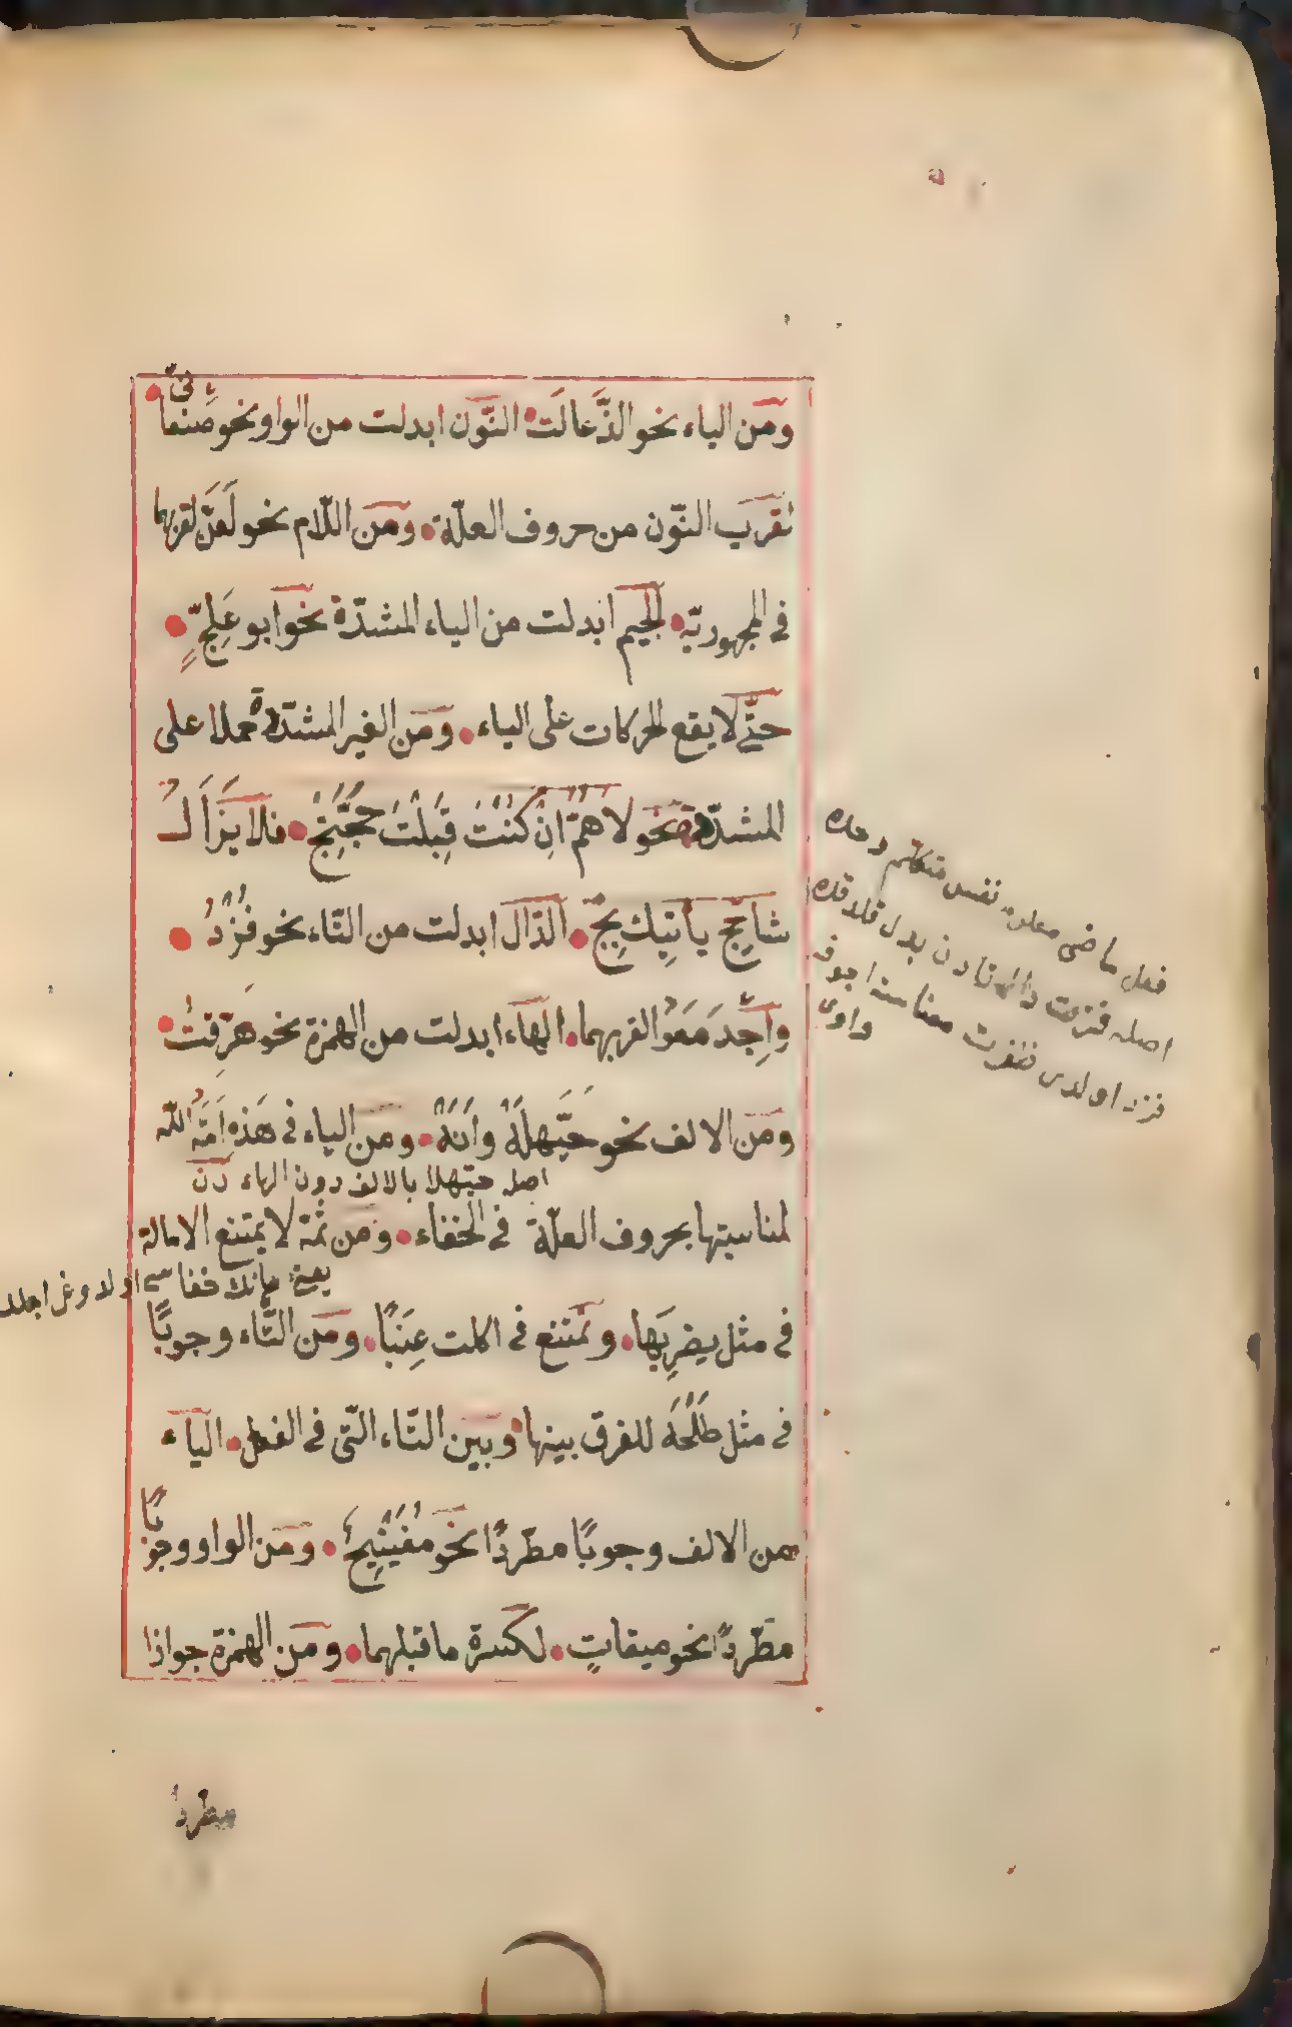 ومن الباء نحو الذَّعالت النّون ابدلت من الواو نحو صنعانىّ
لقرب النّون من حروف العلّة ومن اللّام نحو لَعَنَّ لقربهما
فى المجهوريّة الجيم ابدلت من الياء المشدّدة نحو ابو عَلِجٍّ
حتّى لا يقع الحركات على الياء ومن الغير المشدّدة حملا على
المشدّدة نحو لا هُمَّ اِنْ كُنْتَ قَبِلْتَ حَجَّتِجْ فلا يَزَالُ
شاحِجٌ يأتيكَ بِجْ الدّال ابدلت من التّاء نحو فُزْدُ
واجْدَمَعُوا لقربهما الهاء ابدلت من الهمزة نحو هَرَقتُ
ومن الالف نحو حَيَّهلَهْ وأَنَهْ ومن الياء فى هَذِهِ اَمَةُ اللّه
اصله حيّهلا بالالف دون الهاء
لمناسبتها بحروف العلّة فى الخفاء ومن ثمّة لا يمتنع الامالة
فى مثل يضرِبَها وتمتنع فى اكلت عِنَبًا ومن التّاء وجوبًا
فى مثل طَلْحَهْ للفرق بينها وبين التّاء الّتى فى الفعل الياء
من الالف وجوبًا مطّردًا نحو مُفَيْتِيحٌ ومن الواو وجوبًا
مطّردًا نحو ميقاتٍ لكسرة ما قبلهما ومن الهمزة جوازا
مطردا
فعل ماضى معلوم نفس متكلم وحده
اصله فزت دالى تادن بدل
فزد اولدى ظفرت معناسنه اجوف
واوى